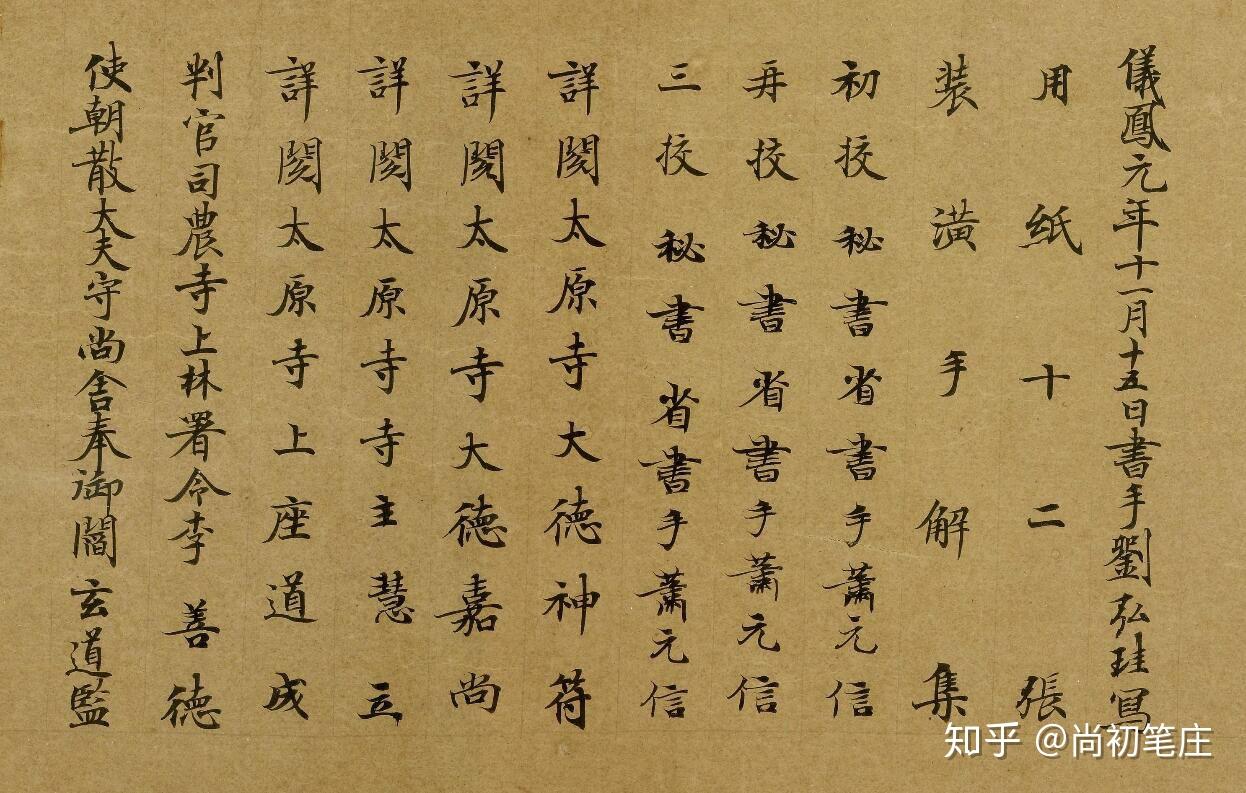 儀鳳元年十一月十五日書手劉弘珪寫
用紙十二張
裝潢手解集
初挍秘書省書手蕭元信
再挍秘書省書手蕭元信
三挍秘書省書手蕭元信
詳閱太原寺大德神符
詳閱太原寺大德嘉尚
詳閱太原寺寺主慧立
詳閱太原寺上座道成
判官司農寺上林署令李善德
使朝散大夫守尚舍奉御閻玄道監
知乎 @尚初笔庄